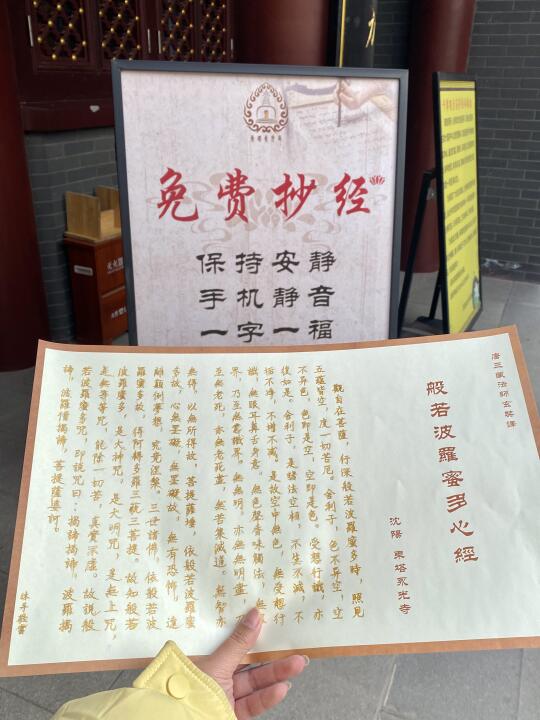 免费抄经
保持安静
手机静音
一字一福
唐三藏法師玄奘譯
般若波羅蜜多心經
沈陽 東塔永光寺
觀自在菩薩，行深般若波羅蜜多時，照見
五蘊皆空，度一切苦厄。舍利子，色不异空，空
不异色，色即是空，空即是色。受想行識，亦
復如是。舍利子，是諸法空相，不生不滅，不
垢不净，不增不減，是故空中無色，無受想行
識，無眼耳鼻舌身意，無色聲香味觸法，無
界，乃至無意識界。無無明，亦無無明盡，
至無老死，亦無老死盡。無苦集滅道，無智亦
無得。以無所得故，菩提薩埵，依般若波羅蜜
多故，心無罣礙，無罣礙故，無有恐怖，遠
離顛倒夢想，究竟涅槃。三世諸佛，依般若波
羅蜜多故，得阿耨多羅三藐三菩提。故知般若
波羅蜜多，是大神咒，是大明咒，是無上咒，
是無等等咒，能除一切苦，真實不虛。故說般
若波羅蜜多咒，即說咒曰：揭諦揭諦，波羅揭
諦，波羅僧揭諦，菩提薩婆訶。